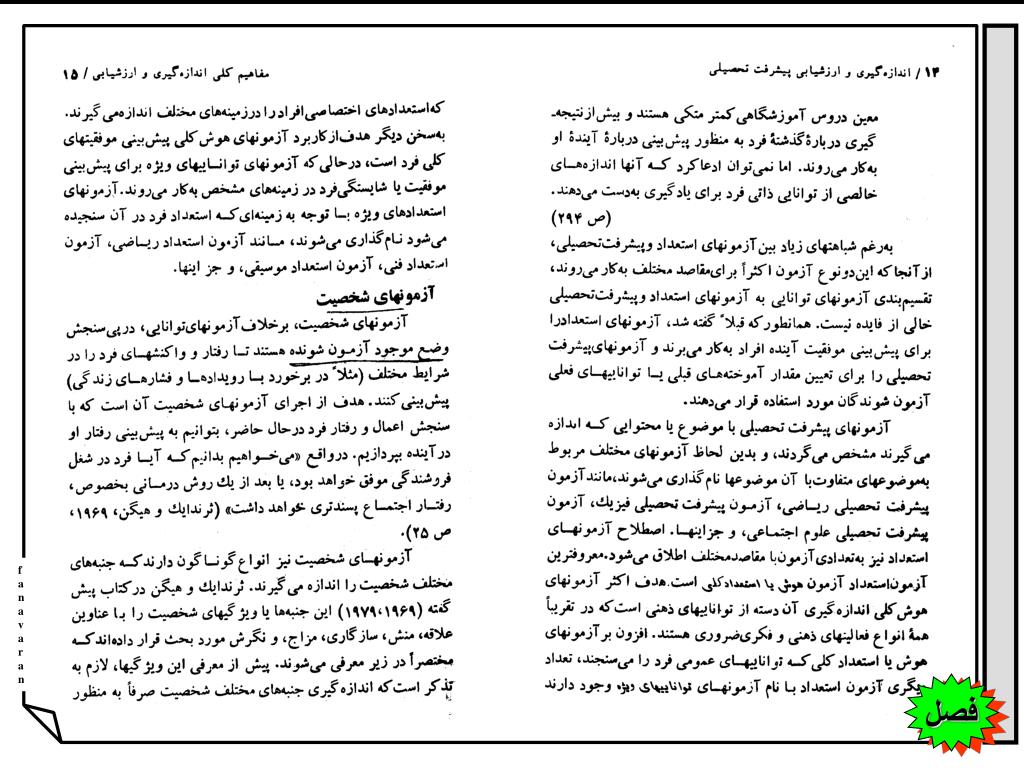 ۱۴ / اندازه‌گیری و ارزشیابی پیشرفت تحصیلی
معین دروس آموزشگاهی کمتر متکی هستند و بیش از نتیجه‌ـ
گیری دربارهٔ گذشتهٔ فرد به منظور پیش‌بینی دربارهٔ آیندهٔ او
به‌کار می‌روند. اما نمی‌توان ادعا کرد کــه آنها اندازه‌هــای
خالصی از توانایی ذاتی فرد برای یادگیری به‌دست می‌دهند.
(ص ۲۹۴)
به‌رغم شباهتهای زیاد بین آزمونهای استعداد و پیشرفت‌تحصیلی،
از آنجا که این‌دو نوع آزمون اکثراً برای‌مقاصد مختلف به‌کار می‌روند،
تقسیم‌بندی آزمونهای توانایی به آزمونهای استعداد و پیشرفت‌تحصیلی
خالی از فایده نیست. همانطور که قبلاً گفته شد، آزمونهای استعداد را
برای پیش‌بینی موفقیت آینده افراد به‌کار می‌برند و آزمونهای‌پیشرفت
تحصیلی را برای تعیین مقدار آموخته‌هــای قبلی یــا تواناییهــای فعلی
آزمون شوندگان مورد استفاده قرار می‌دهند.
آزمونهای پیشرفت تحصیلی با موضوع یا محتوایی کــه اندازه
می‌گیرند مشخص می‌گردند، و بدین لحاظ آزمونهای مختلف مربوط
به‌موضوعهای متفاوت با آن موضوعها نام گذاری می‌شوند،مانند آزمون
پیشرفت تحصیلی ریــاضی، آزمــون پیشرفت تحصیلی فیزیك، آزمون
پیشرفت تحصیلی علوم اجتماعی، و جزاینهــا. اصطلاح آزمونهــای
استعداد نیز به‌تعدادی آزمون با مقاصدمختلف اطلاق می‌شود.معروفترین
آزمون‌استعداد آزمون هوش یا استعداد کلی است.هدف اکثر آزمونهای
هوش کلی اندازه گیری آن دسته از تواناییهای ذهنی است که در تقریباً
همهٔ انواع فعالیتهای ذهنی و فکری‌ضروری هستند. افزون بر آزمونهای
هوش یا استعداد کلی کــه تواناییهــای عمومی فرد را می‌سنجند، تعداد
دیگری آزمون استعداد بــا نام آزمونهــای تواناییهای ویژه وجود دارند
مفاهیم کلی اندازه‌گیری و ارزشیابی / ۱۵
که‌استعدادهای اختصاصی افراد را درزمینه‌های مختلف اندازه‌می‌گیرند.
به‌سخن دیگر هدف از کاربرد آزمونهای هوش کلی پیش‌بینی موفقیتهای
کلی فرد است، درحالی که آزمونهای توانــاییهای ویژه برای پیش‌بینی
موفقیت یا شایستگی‌فرد در زمینه‌های مشخص به‌کار می‌روند.آزمونهای
استعدادهای ویژه بــا توجه به زمینه‌ای کــه استعداد فرد در آن سنجیده
می‌شود نــام گذاری می‌شوند، مــانند آزمون استعداد ریــاضی، آزمون
استعداد فنی، آزمون استعداد موسیقی، و جز اینها.
آزمونهای شخصیت
آزمونهای شخصیت، برخلاف آزمونهای‌توانایی، درپی‌سنجش
وضع موجود آزمــون شونده هستند تــا رفتار و واکنشهــای فرد را در
شرایط مختلف (مثلاً در برخورد بــا رویدادهــا و فشارهــای زندگی)
پیش‌بینی کنند. هدف از اجرای آزمونهــای شخصیت آن است که با
سنجش اعمال و رفتار فرد درحال حاضر، بتوانیم به پیش‌بینی رفتار او
در آینده بپردازیم. درواقع «می‌خــواهیم بدانیم کــه آیــا فرد در شغل
فروشندگی موفق خواهد بود، یا بعد از یك روش درمــانی بخصوص،
رفتــار اجتمــاع پسندتری خواهد داشت» (ثرندایك و هیگن، ۱۹۶۹،
ص ۲۵).
آزمونهــای شخصیت نیز انواع گونــاگون دارند کــه جنبه‌های
مختلف شخصیت را اندازه می‌گیرند. ثرندایك و هیگن در کتاب پیش
گفته (۱۹۷۹،۱۹۶۹) این جنبه‌ها یا ویژگیهای شخصیت را با عناوین
علاقه، منش، سازگاری، مزاج، و نگرش مورد بحث قرار داده‌اند کــه
مختصراً در زیر معرفی می‌شوند. پیش از معرفی این ویژگیها، لازم به
تذکر است که اندازه گیری جنبه‌های مختلف شخصیت صرفاً به منظور
fanavaran
فصل